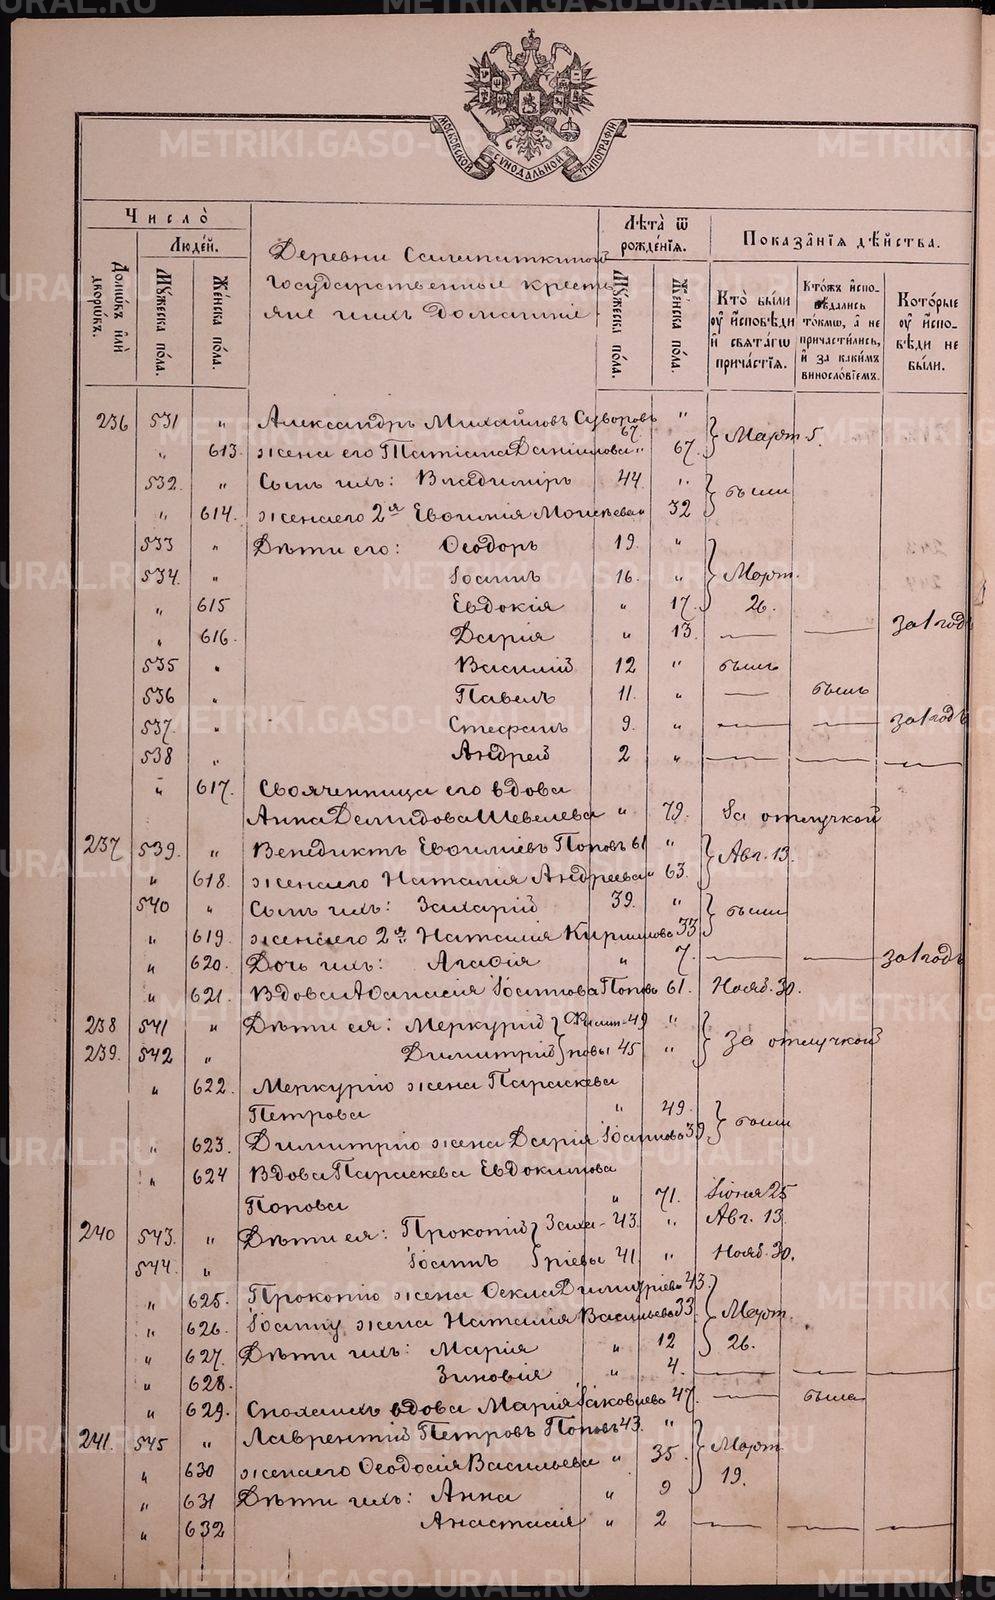 МОСКОВСКОЙ СѴНОДАЛЬНОЙ ТИПОГРАФІИ
Число̀
Люде́й.
Домѡ́въ и҆лѝ дворѡ́въ.
Мꙋ́жеска по́ла.
Же́нска по́ла.
Деревни
Государственные кресть
яне ихъ домашніе
Лѣ́та ѿ рожде́нїѧ.
Мꙋ́жеска по́ла.
Же́нска по́ла.
Показа̑нїѧ дѣ́йства.
Кто̀ бы́ли ᲂу҆ и҆сповѣ́ди и҆ свѧта́гѡ прича́стїѧ.
Кто́жъ и҆спо-вѣ́дались то́кмѡ, а҆ не причасти́лись, и҆ за каки́мъ винослѡ́вїемъ.
Кото́рые ᲂу҆ и҆спо-вѣ́ди не бы́ли.
236 531 " Александръ Михайловъ Суворовъ 67. " Март 5.
" 613. жена его Татіана Даніилова " 67.
532. " Сынъ ихъ: Владиміръ 44. " были
" 614. жена его 2я Евѳимія Моисѣева " 32
533 " Дѣти его: Ѳеодоръ 19. " Март. 26.
534. " Іоаннъ 16. "
" 615 Евдокія " 17.
" 616. Дарія " 13. — — за 1 годъ
535 " Василій 12 " былъ
536 " Павелъ 11. " — былъ
537. " Стефанъ 9. " — — за 1 годъ
538 " Андрей 2 " — — —
" 617. Свояченница его вдова
Анна Демидова Шевелева " 79. За отлучкой
237 539. " Венедиктъ Евѳиміевъ Поповъ 61 " Авг. 13.
" 618. жена его Наталія Андреева " 63.
540 " Сынъ ихъ: Захарій 39. " были
" 619. жена его 2я Наталія Кириллова 33
" 620. Дочь ихъ: Агафія " 7. — — за 1 годъ
" 621. Вдова Аѳанасія Іоаннова Попова 61. Нояб. 30.
238 541 " Дѣти ея: Меркурій } Филип- 49 " За отлучкой
239. 542 " Димитрій } повы 45 "
" 622. Меркурію жена Параскева
Петрова " 49. были
" 623. Димитрію жена Дарія Іоаннова 39
" 624 Вдова Параскева Евдокимова
Попова " 71. Іюня 25
240 543. " Дѣти ея: Прокопій } Заха- 43. " Авг. 13
544. " Іоаннъ } ріевы 41. " Нояб. 30.
" 625. Прокопію жена Ѳекла Димитріева 43. Март. 26.
" 626. Іоанну жена Наталія Васильева 33.
" 627. Дѣти ихъ: Марія " 12
" 628. Зиновія " 4. — — —
" 629. Сноха ихъ вдова Марія Іаковлева 47. — была
241. 545 " Лаврентій Петровъ Поповъ 43. " Март 19.
" 630 жена его Ѳеодосія Васильева " 35.
" 631 Дѣти ихъ: Анна " 9
" 632 Анастасія " 2 — — —
METRIKI.GASO-URAL.RU